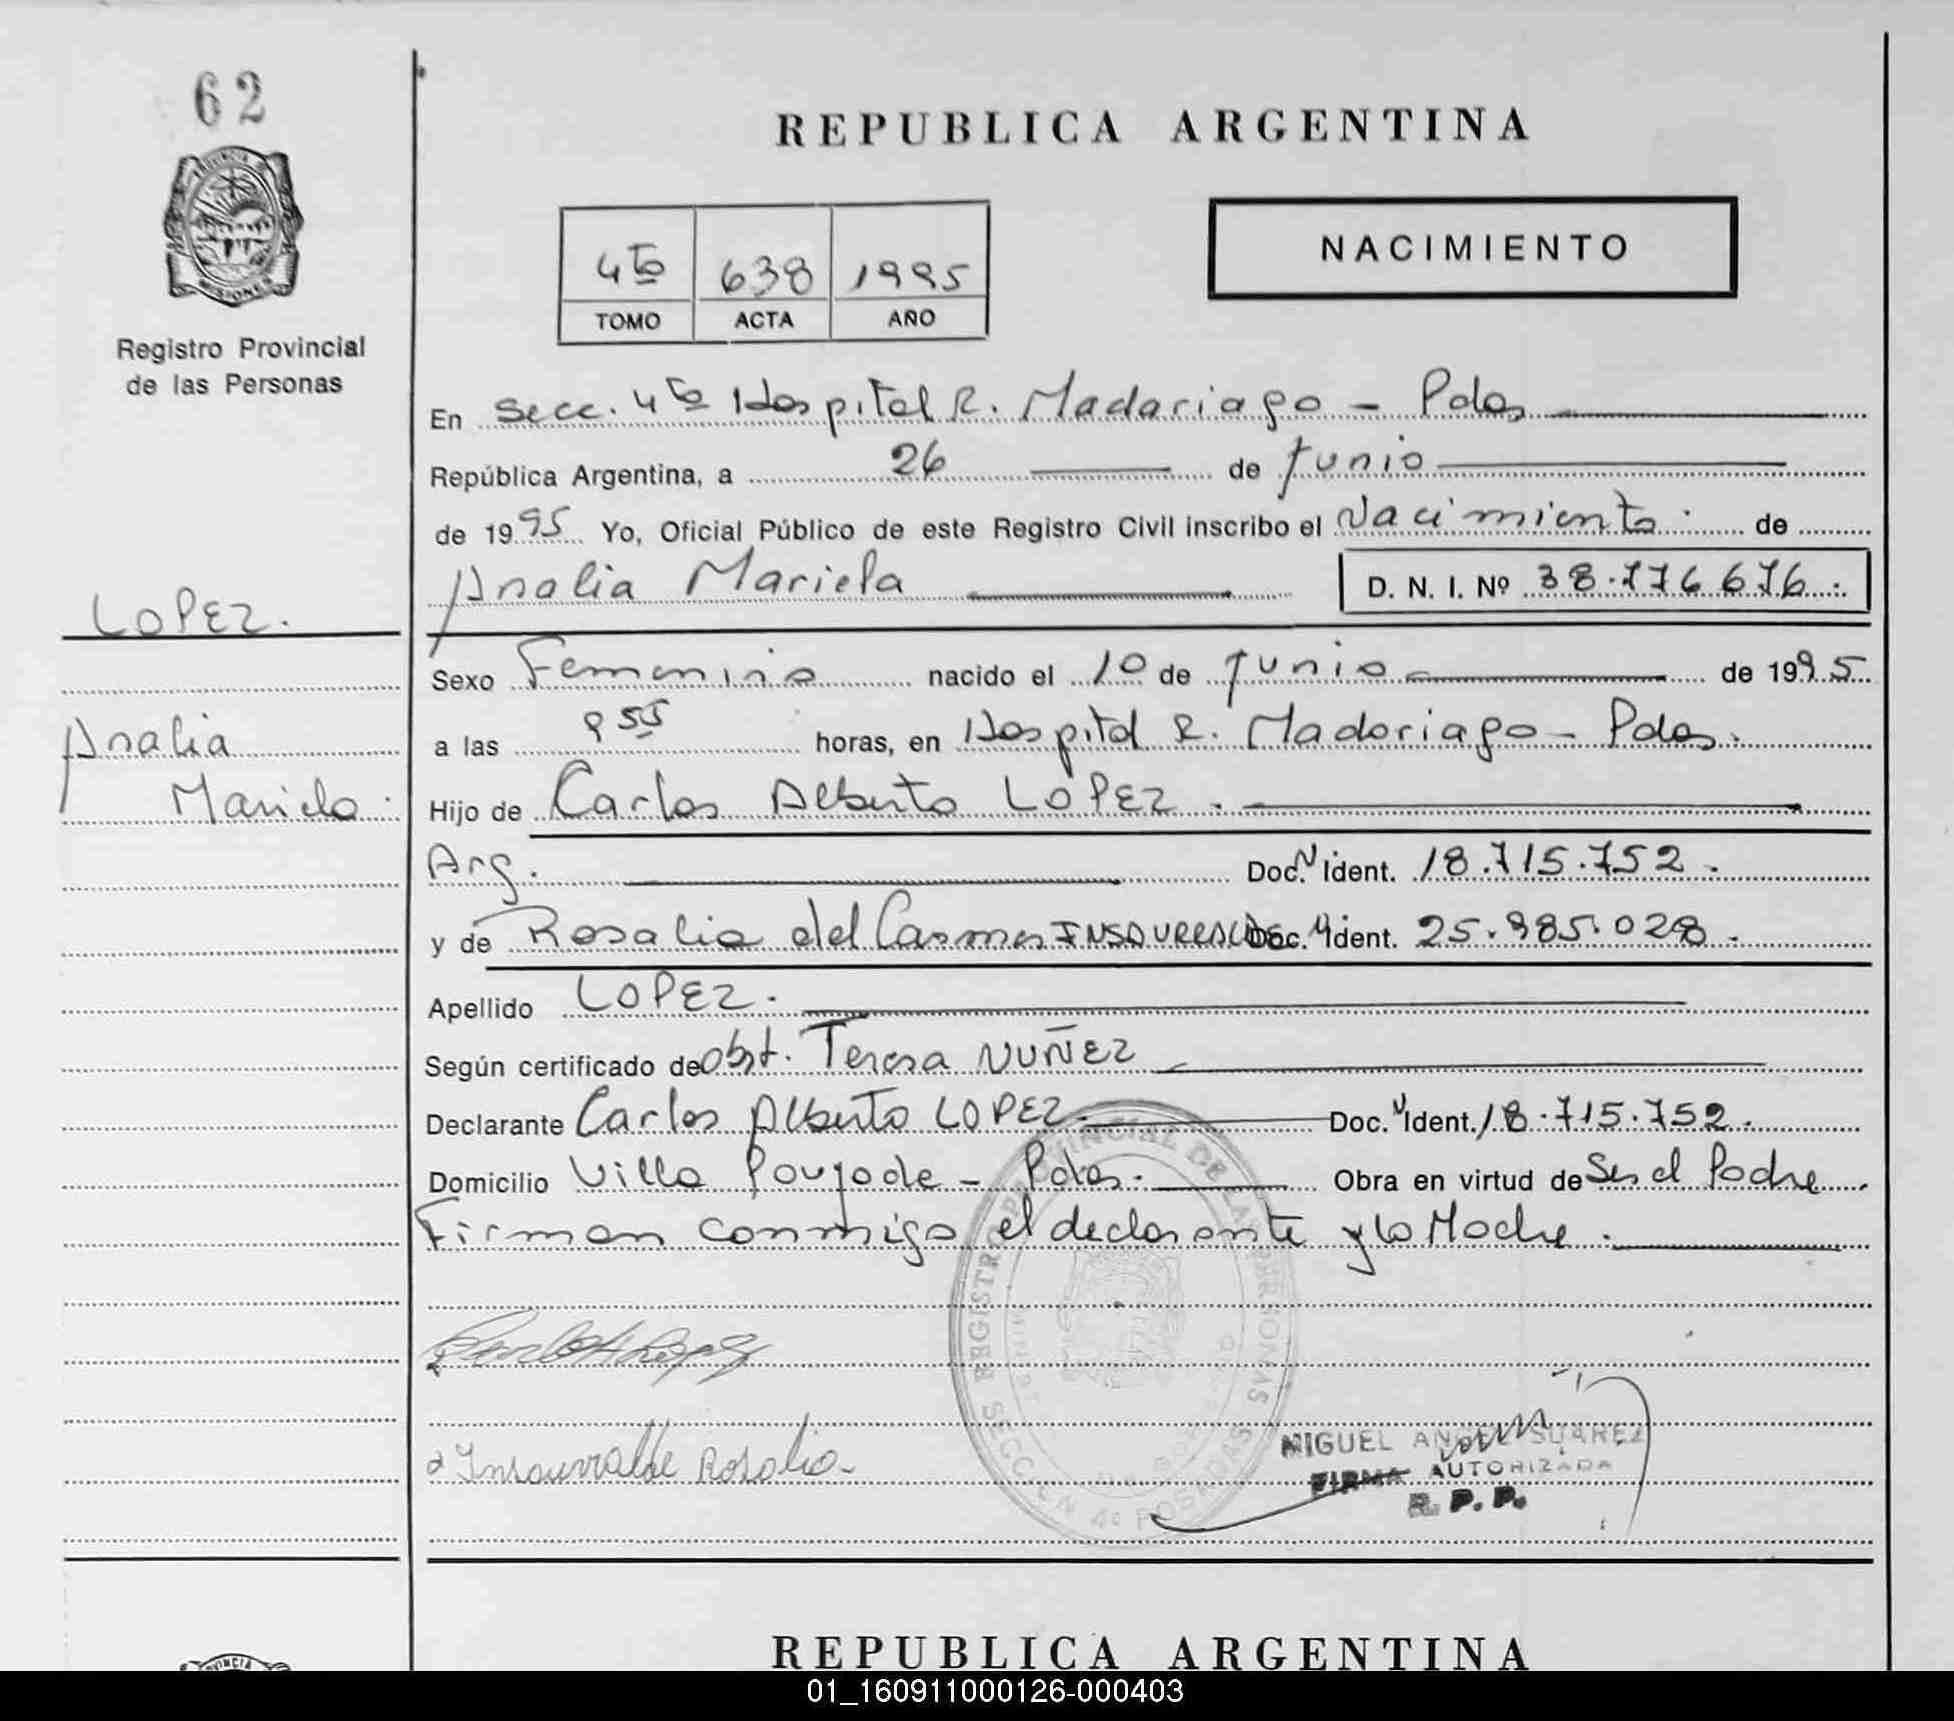 62
REPUBLICA ARGENTINA
NACIMIENTO
4ta 638 1995
TOMO ACTA AÑO
Registro Provincial
de las Personas
En Secc. 4ta Hospital R. Madariaga - Pdas
República Argentina, a 26 de Junio
de 1995 Yo, Oficial Público de este Registro Civil inscribo el Nacimiento de
Analia Mariela D. N. I. Nº 38.776.676.
LOPEZ.
Sexo Femenino nacido el 10 de Junio de 1995
Analia
a las 9 55 horas, en Hospital R. Madariaga - Pdas.
Mariela.
Hijo de Carlos Alberto LOPEZ.
Arg. Doc. N Ident. 18.715.752.
y de Rosalia del Carmen INSAURRALDE Doc. N Ident. 25.985.028.
Apellido LOPEZ.
Según certificado de Obst. Teresa NUÑEZ
Declarante Carlos Alberto LOPEZ. Doc. N Ident. 18.715.752.
Domicilio Villa Poujade - Pdas. Obra en virtud de Ser el Padre
Firman conmigo el declarante y la Madre.
REGISTRO PROVINCIAL DE LAS PERSONAS
SECCION 4º POSADAS
Insaurralde Rosalia
MIGUEL ANGEL SUAREZ
FIRMA AUTORIZADA
R. P. P.
PROVINCIA
REPUBLICA ARGENTINA
01_160911000126-000403